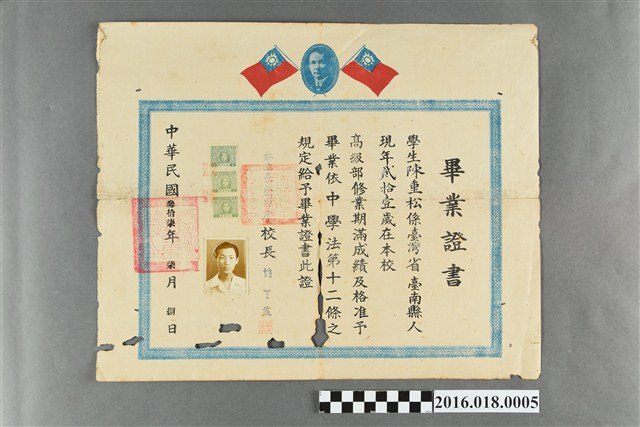 畢業證書
學生陳重松係臺灣省臺南縣人
現年貳拾壹歲在本校
高級部修業期滿成績及格准予
畢業依中學法第十二條之
規定給予畢業證書此證
校長
中華民國叁拾柒年柒月捌日
2016.018.0005